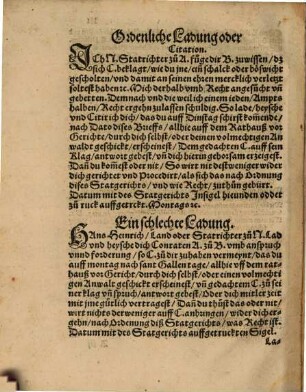 Ordenliche Ladung oder
Citation.
ICh N. Statrichter zů A. füge dir B. zuwissen / dz
sich C. beklagt / wie du jne / ein schalck oder böswicht
gescholten / vnd damit an seinen ehren mercklich verletzt
solt est haben ꝛc. Mich derhalb vmb Recht angesücht vñ
gebetten. Demnach vnd die weil ich einem jeden / Ampts
halben / Recht ergehn zulassen schuldig. So lade / heysche
vnd Citir ich dich / das du auff Dinstag schirst komende /
nach Dato dises Brieffs / alhie auff dem Rathauß vor
Gericht / durch dich selbst / oder deinen volmechtigen An
waldt geschickt / erscheinest / Dem gedachten C. auff sein
Klag / antwort gebest / vñ dich hierin gehorsam erzeigest.
Dañ du komest oder nit / So wirt nicht destweniger wider
dich gerichtet vnd Procedirt / als sich das nach Ordnung
dises Statgerichts / vnd wie Recht / zuthůn gebürt.
Datum mit des Statgerichts Insigel hieunden
zů ruck auffgetruckt. Montags ꝛc.
Ein schlechte Ladung.
HAns Heinrich / Land oder Statrichter zů N. Lad
vnd heysche dich Conraten A. zů B. vmb anspruch
vnd forderung / so C. zů dir zuhaben vermeynt / das du
auff montag nach sant Gallentage / allhie vff dem rat
hauß vor Gericht / durch dich selbst / oder einen volmechti
gen Anwalt geschickt erscheinest / vñ gedachtem C. zů sei
ner klag vñ spruch / antwort gebest / Oder dich mitler zeit
mit jme gütlich vertragest / Dañ du thůst das oder nit /
wirt nichts derweniger auff C. anhungen / wider dich er-
gehn / nach Ordenung diß Statgerichts / was Recht ist.
Datum mit des Statgerichts auffgetruckten Sigel.
La-